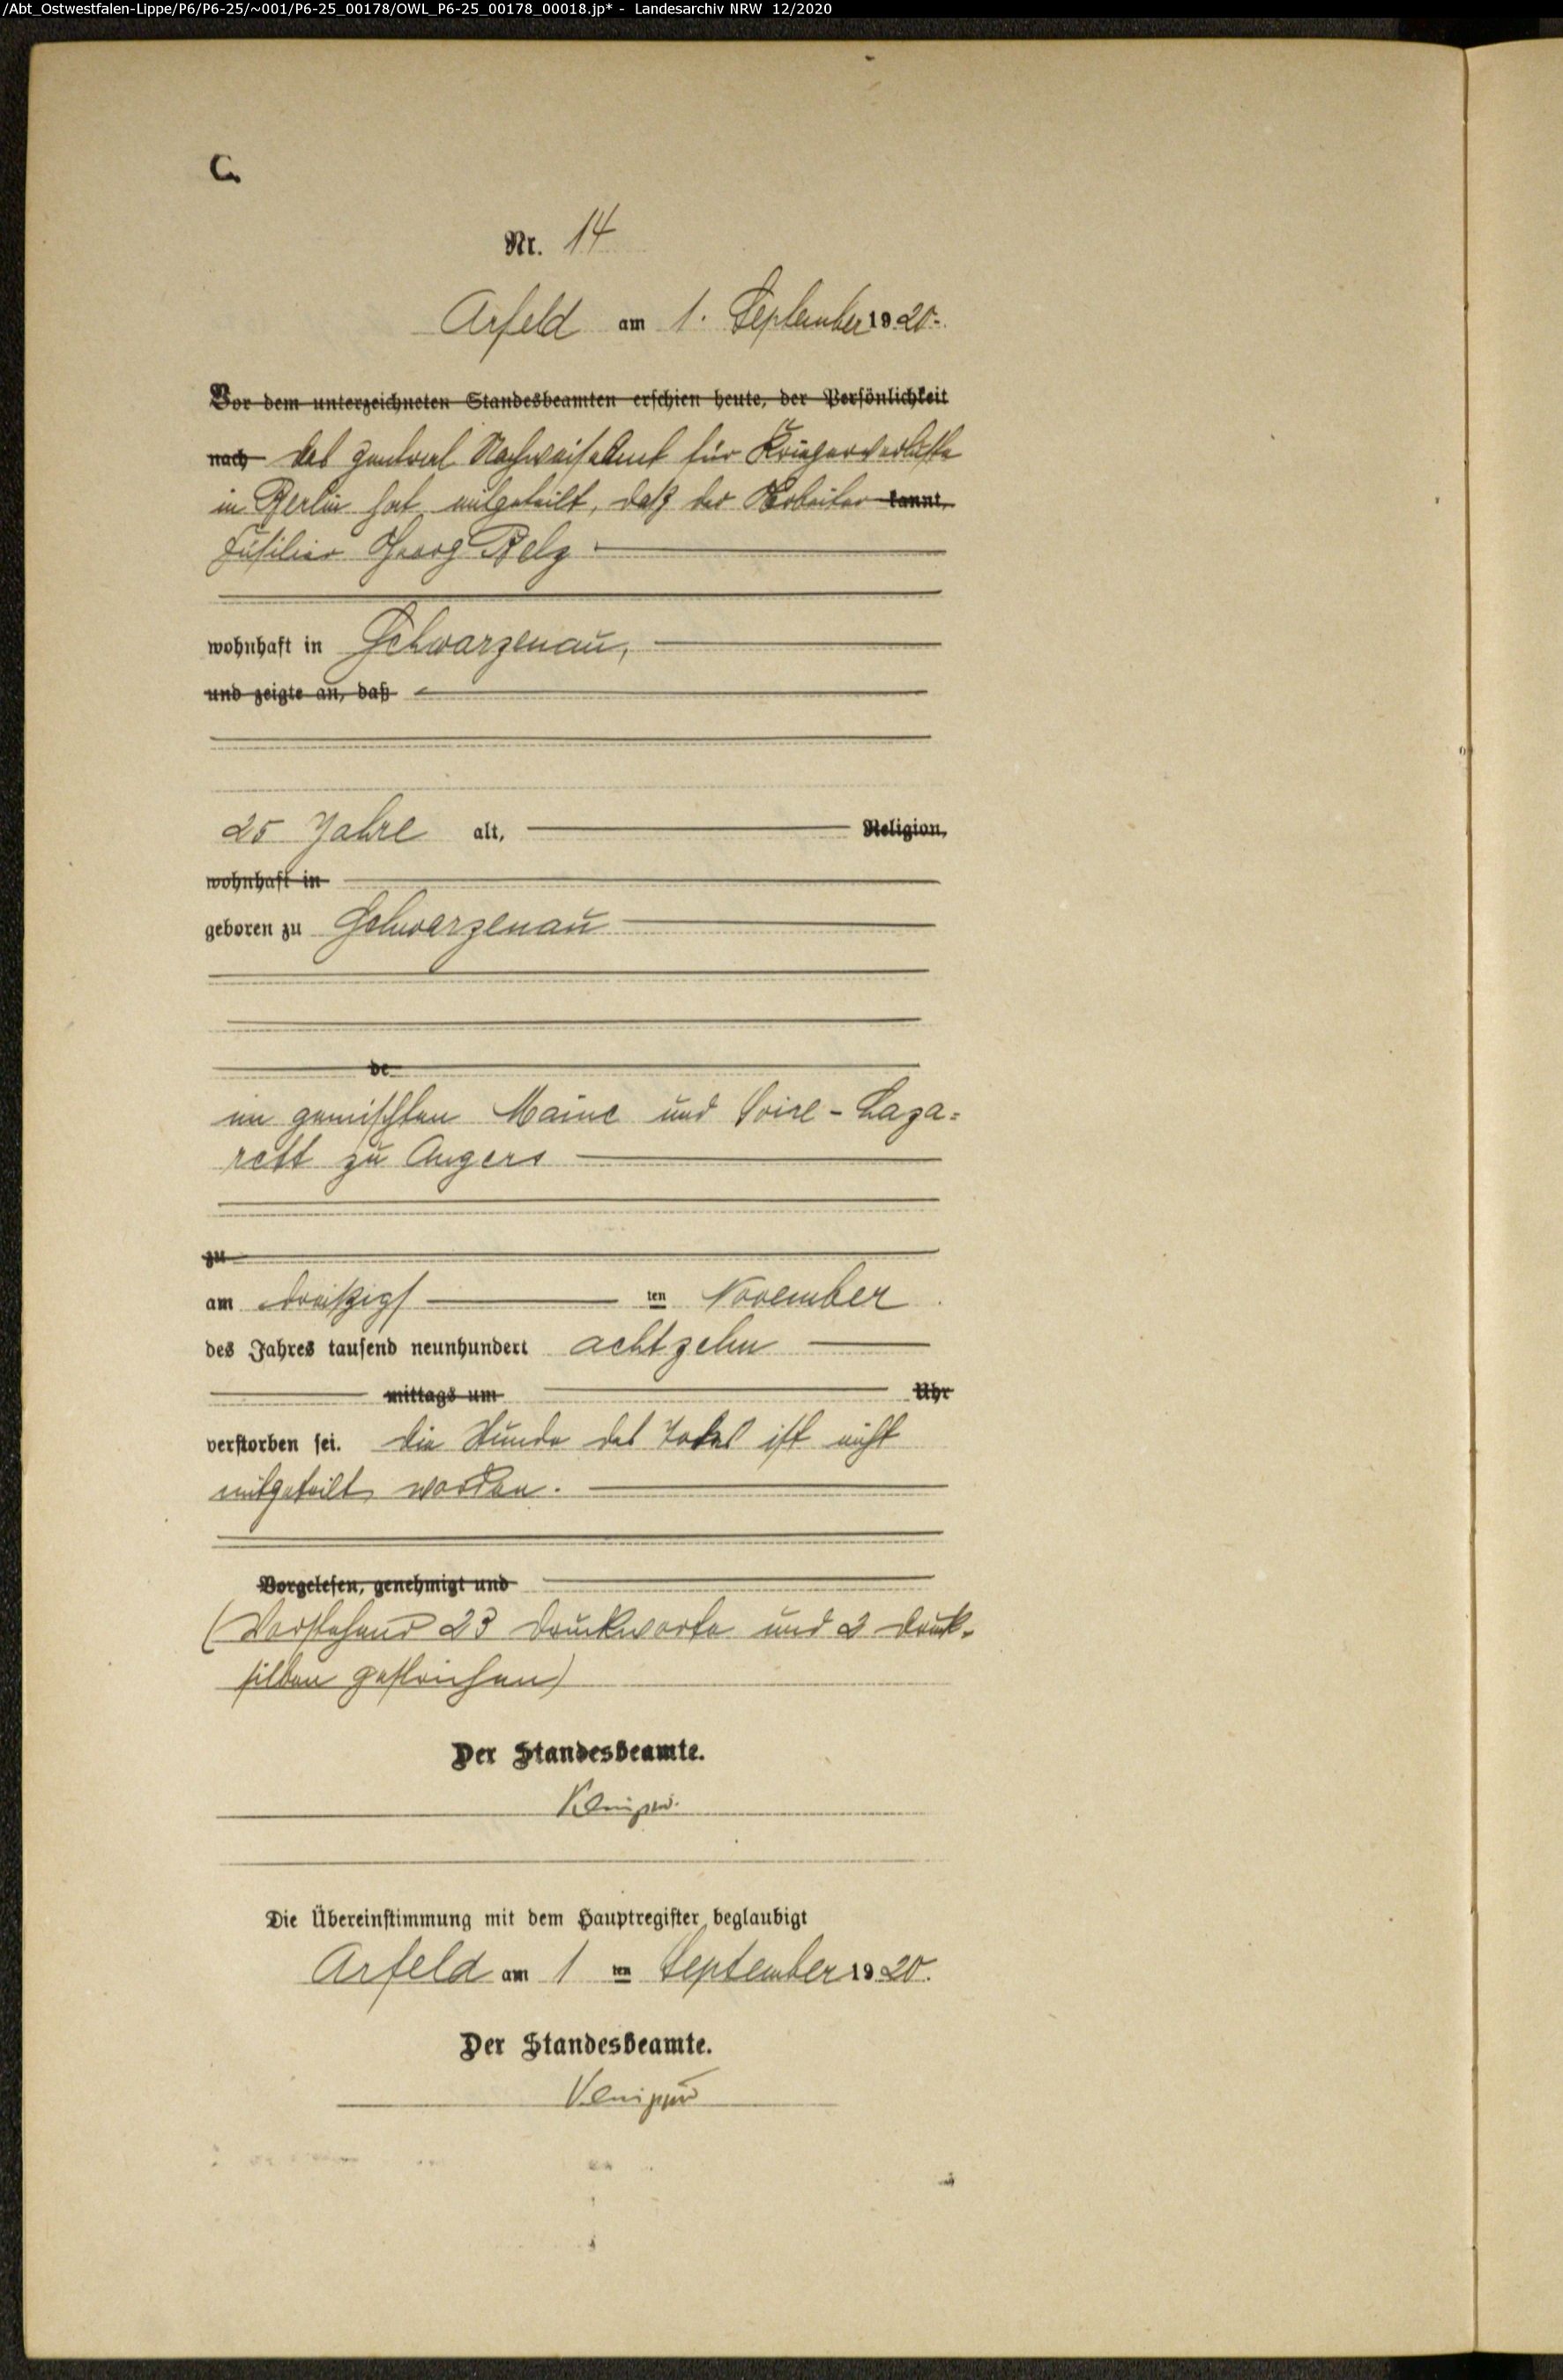 /Abt_Ostwestfalen-Lippe/P6/P6-25/~001/P6-25_00178/OWL_P6-25_00178_00018.jp* - Landesarchiv NRW 12/2020
C.
Nr. 14
Arfeld am 1. September 1920.
Vor dem unterzeichneten Standesbeamten erschien heute, der Persönlichkeit
nach das Zentral Nachweiseamt für Kriegerverluste
in Berlin hat mitgeteilt, daß der Arbeiter kannt,
Füsilier Georg Belz
wohnhaft in Schwarzenau,
und zeigte an, daß
25 Jahre alt, Religion,
wohnhaft in
geboren zu Schwarzenau
de
im gemischten Maine und Loire-Laza=
rett zu Angers
zu
am dreißigs ten November
des Jahres tausend neunhundert achtzehn
mittags um Uhr
verstorben sei. Die Stunde des Todes ist nicht
mitgeteilt worden.
Vorgelesen, genehmigt und
(Vorstehend 23 Druckworte und 2 Druck-
silben gestrichen)
Der Standesbeamte.
Die Übereinstimmung mit dem Hauptregister beglaubigt
Arfeld am 1 ten September 1920.
Der Standesbeamte.